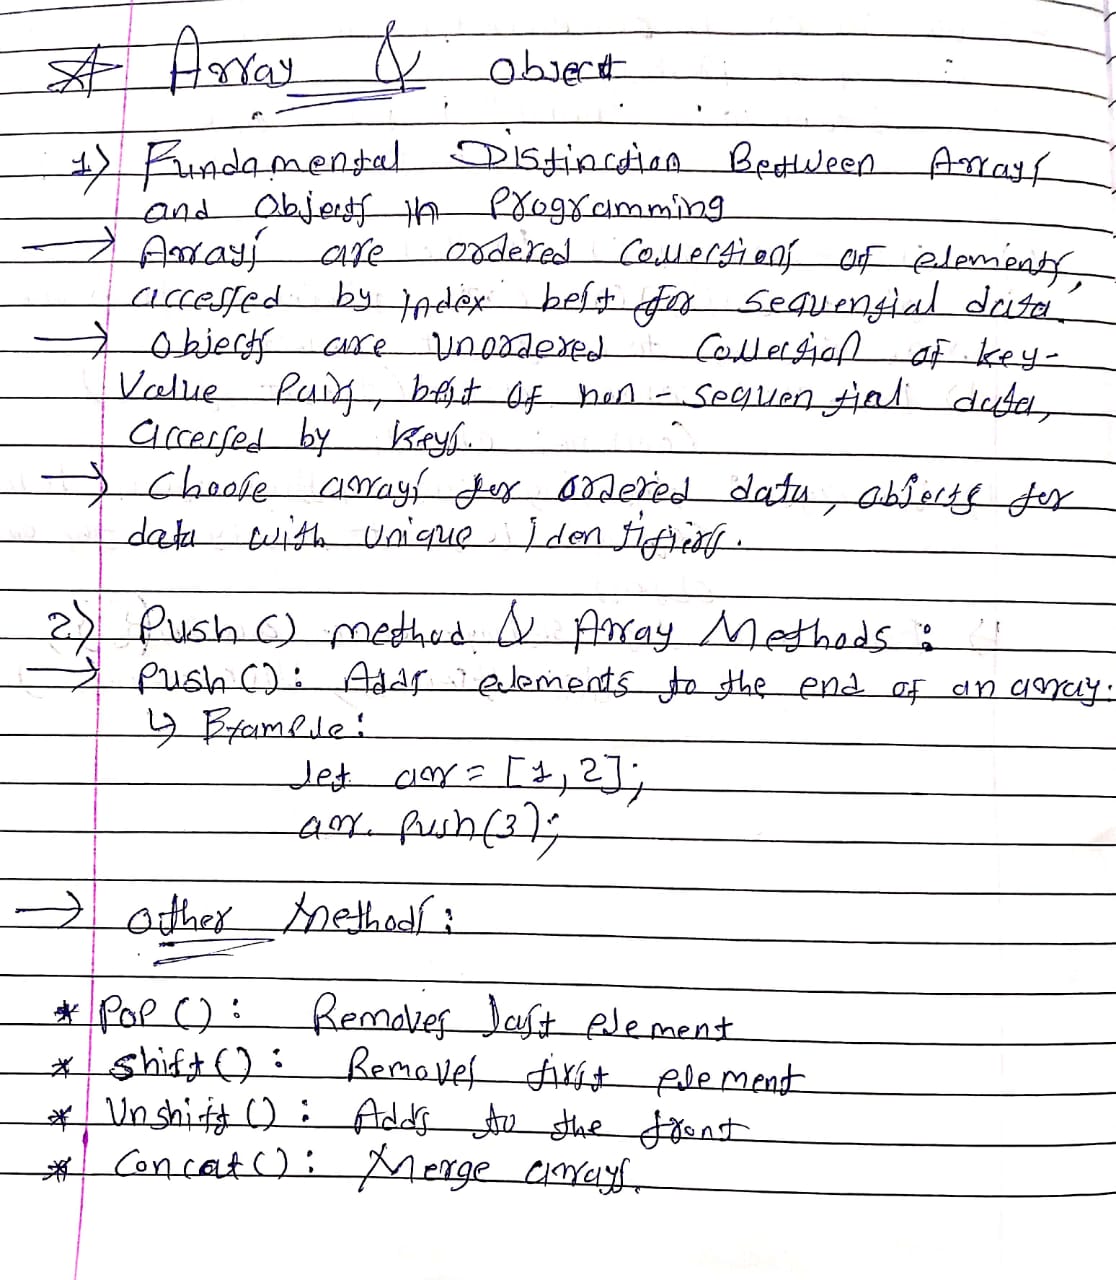 * Array & Object
1) Fundamental Distinction Between Arrays
and Objects in Programming
→ Arrays are ordered Collections of elements,
accessed by index best for sequential data.
→ Objects are unordered Collection of key-
Value Pairs, best of non-sequential data,
accessed by keys.
→ Choose arrays for ordered data, objects for
data with unique identifiers.
2) Push() method & Array Methods :
→ Push(): Adds elements to the end of an array.
↳ Example:
let arr = [1, 2];
arr. Push(3);
→ Other Methods :
* Pop() : Removes last element
* Shift() : Removes first element
* Unshift() : Adds to the front
* Concat() : Merge arrays.